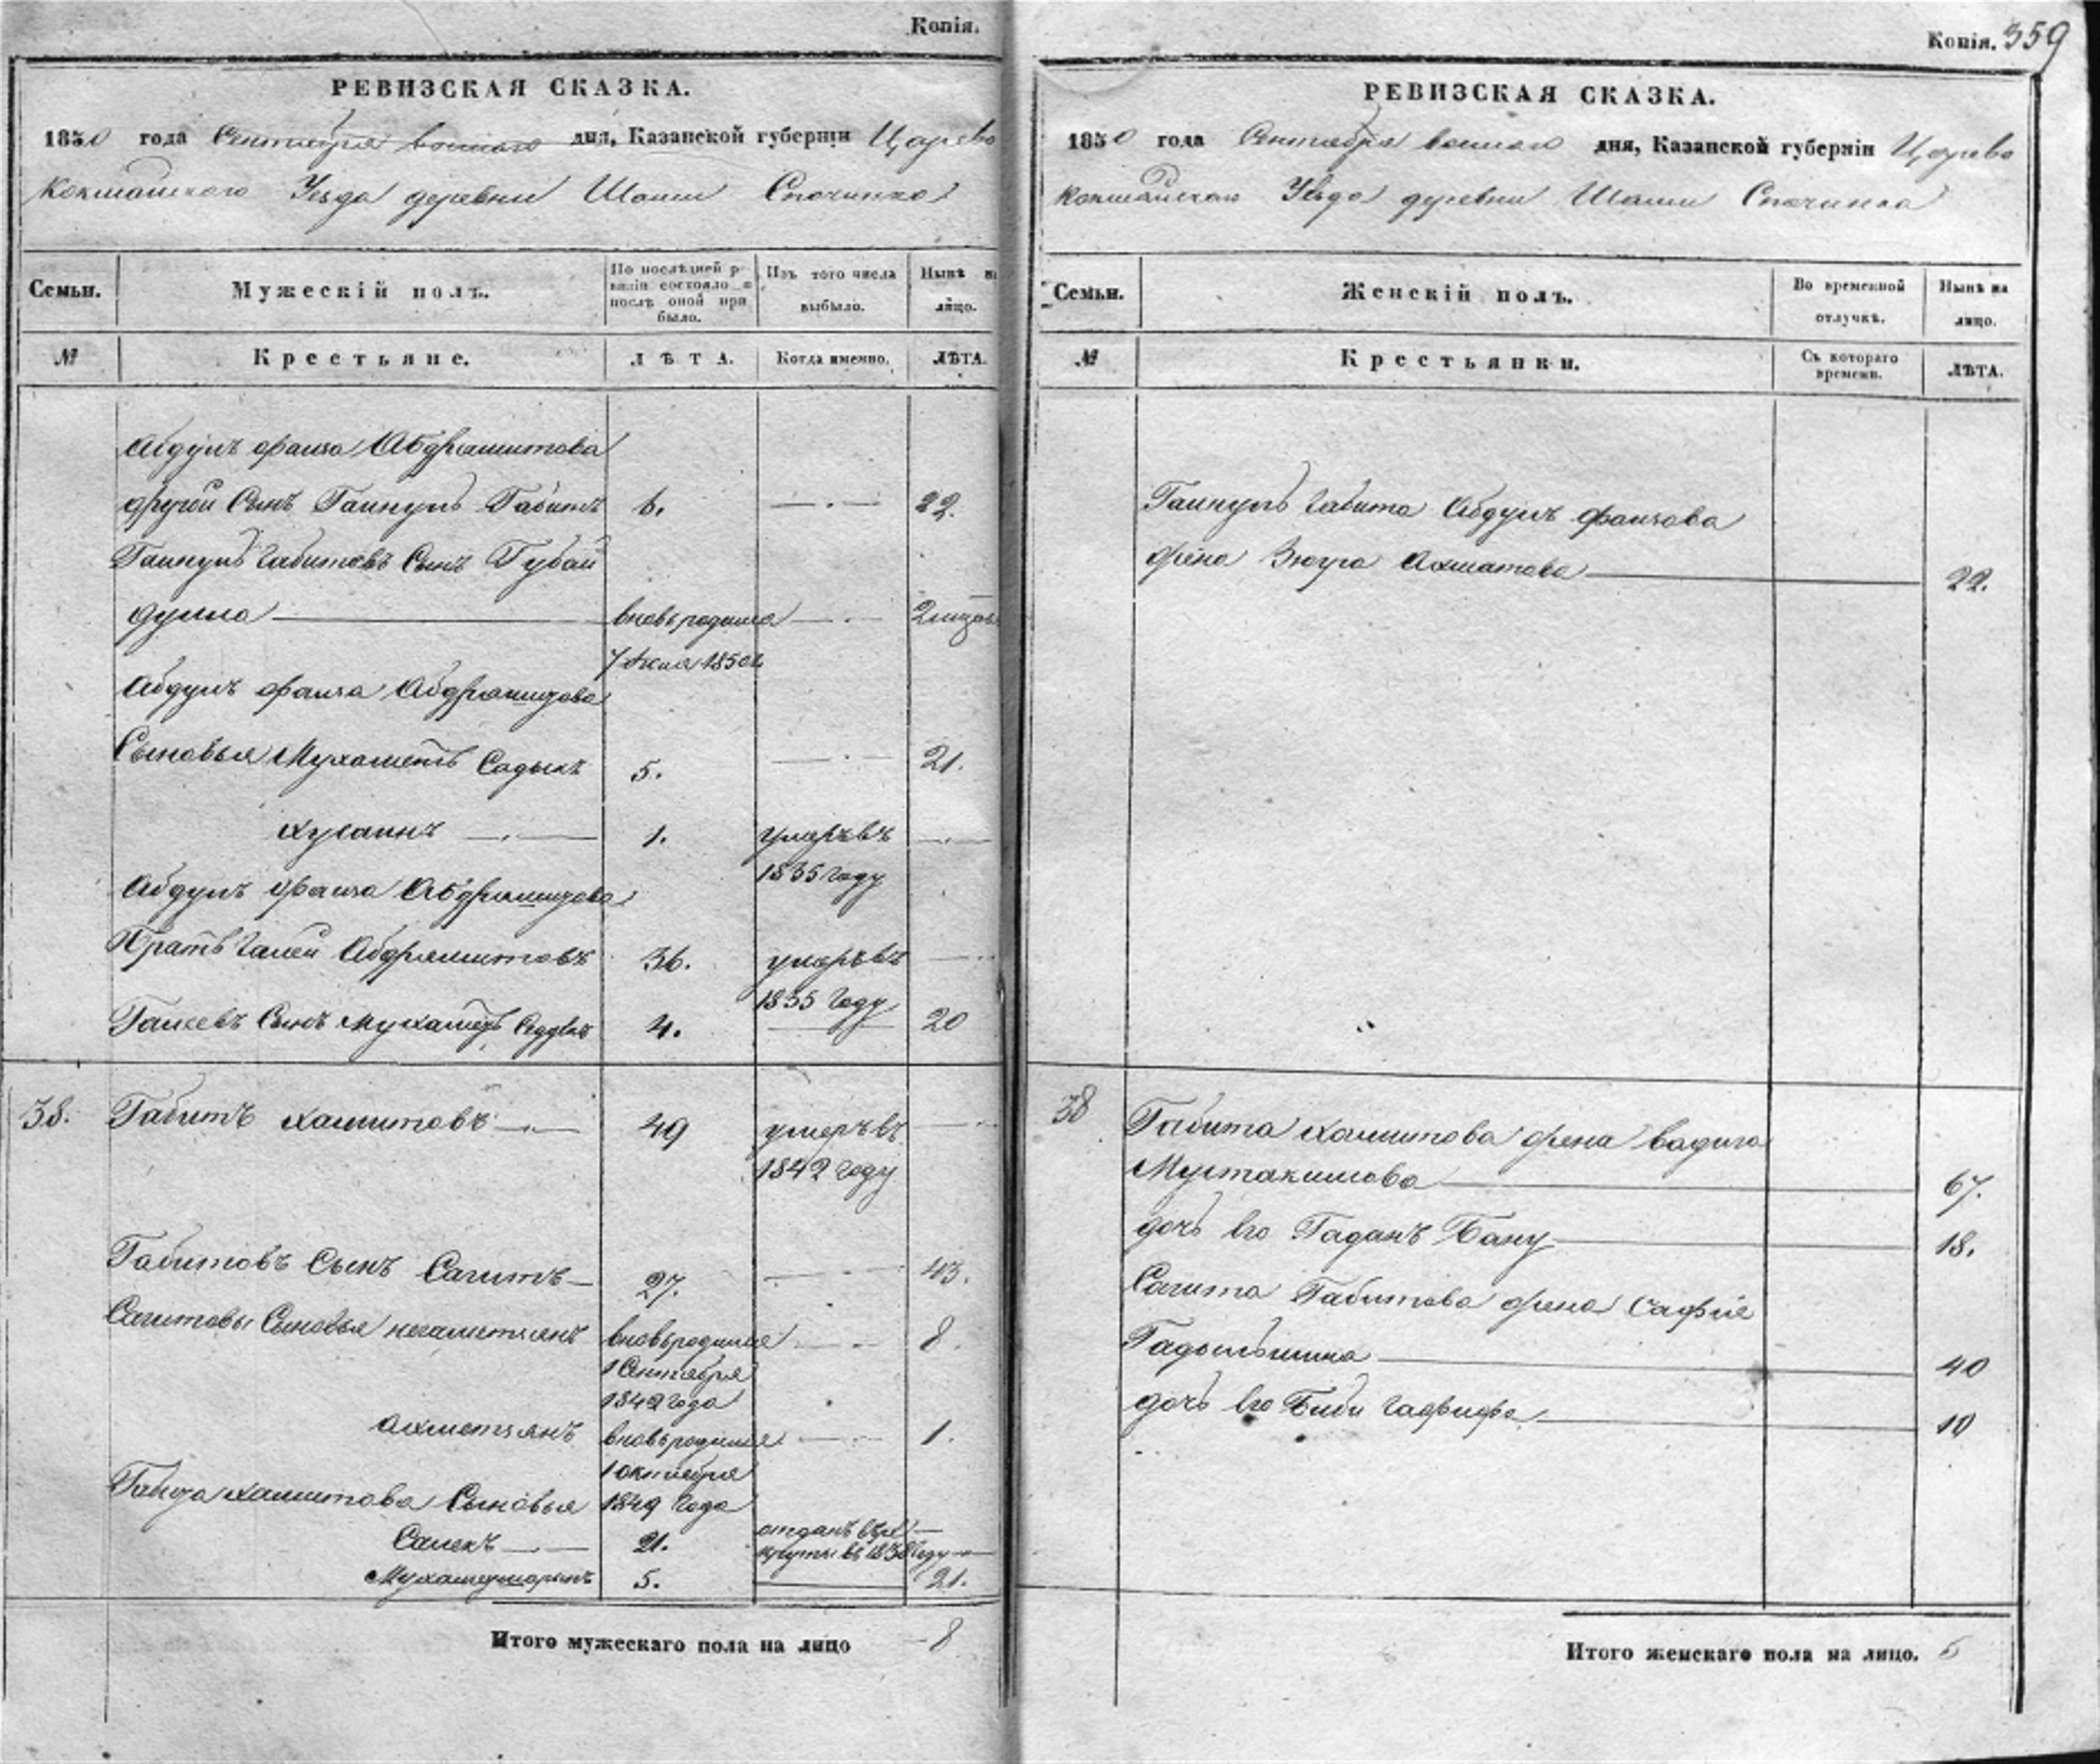 Копія.
РЕВИЗСКАЯ СКАЗКА.
1850 года Сентября восмаго дня, Казанской губерніи Царево
Кокшайскаго Уѣзда деревни Шаши
Семьи.
Мужескій полъ.
По послѣдней ре-
визіи состояло и
послѣ оной при
было.
Изъ того числа
выбыло.
Нынѣ на
лицо.
№
Крестьяне.
ЛѢТА.
Когда именно.
ЛѢТА.
Абдулъ фаиза Абдряшитова
другой Сынъ Гаинулъ Габитъ 6. 22.
Гаинулъ Габитовъ Сынъ Губай
дулла вновьродился
7 1850
Абдулъ фаиза Абдряшитова
Сыновья Мухаметь Садыкъ 5. 21.
Хусаинъ 1. умеръ въ
1835 году
Абдулъ фаиза Абдряшитова
Братъ Галей Абдряшитовъ 36. умеръ въ
1835 году
Галеевъ Сынъ Мухаметь 4. 20
38. Габитъ Хамитовъ 49 умеръ въ
1842 году
Габитовъ Сынъ Сагитъ 27. 43.
Сагитовы Сыновья вновьродился 8.
1 Сентября
1842 года
Ахметзянъ вновьродился 1.
1 октября
1849 года
Хамитова Сыновья
Салехъ 21. отданъ въ ре
круты въ 1838 году
5. 21.
Итого мужескаго пола на лицо 8
Копія. 359
РЕВИЗСКАЯ СКАЗКА.
1850 года Сентября восмаго дня, Казанской губерніи Царево
Кокшайскаго Уѣзда деревни Шаши
Семьи.
Женскій полъ.
Во временной
отлучкѣ.
Нынѣ на
лицо.
№
Крестьянки.
Съ котораго
времени.
ЛѢТА.
Гаинулъ Габита Абдулъ фаизова
жена Зюгра Ахматова 22.
38 Габита Хамитова жена Вадига
Мустакимова 67.
дочь его Гаданъ Бану 18.
Сагита Габитова жена Сафіе
Гадыльшина 40
дочь его Биби Гафифа 10
Итого женскаго пола на лицо. 5